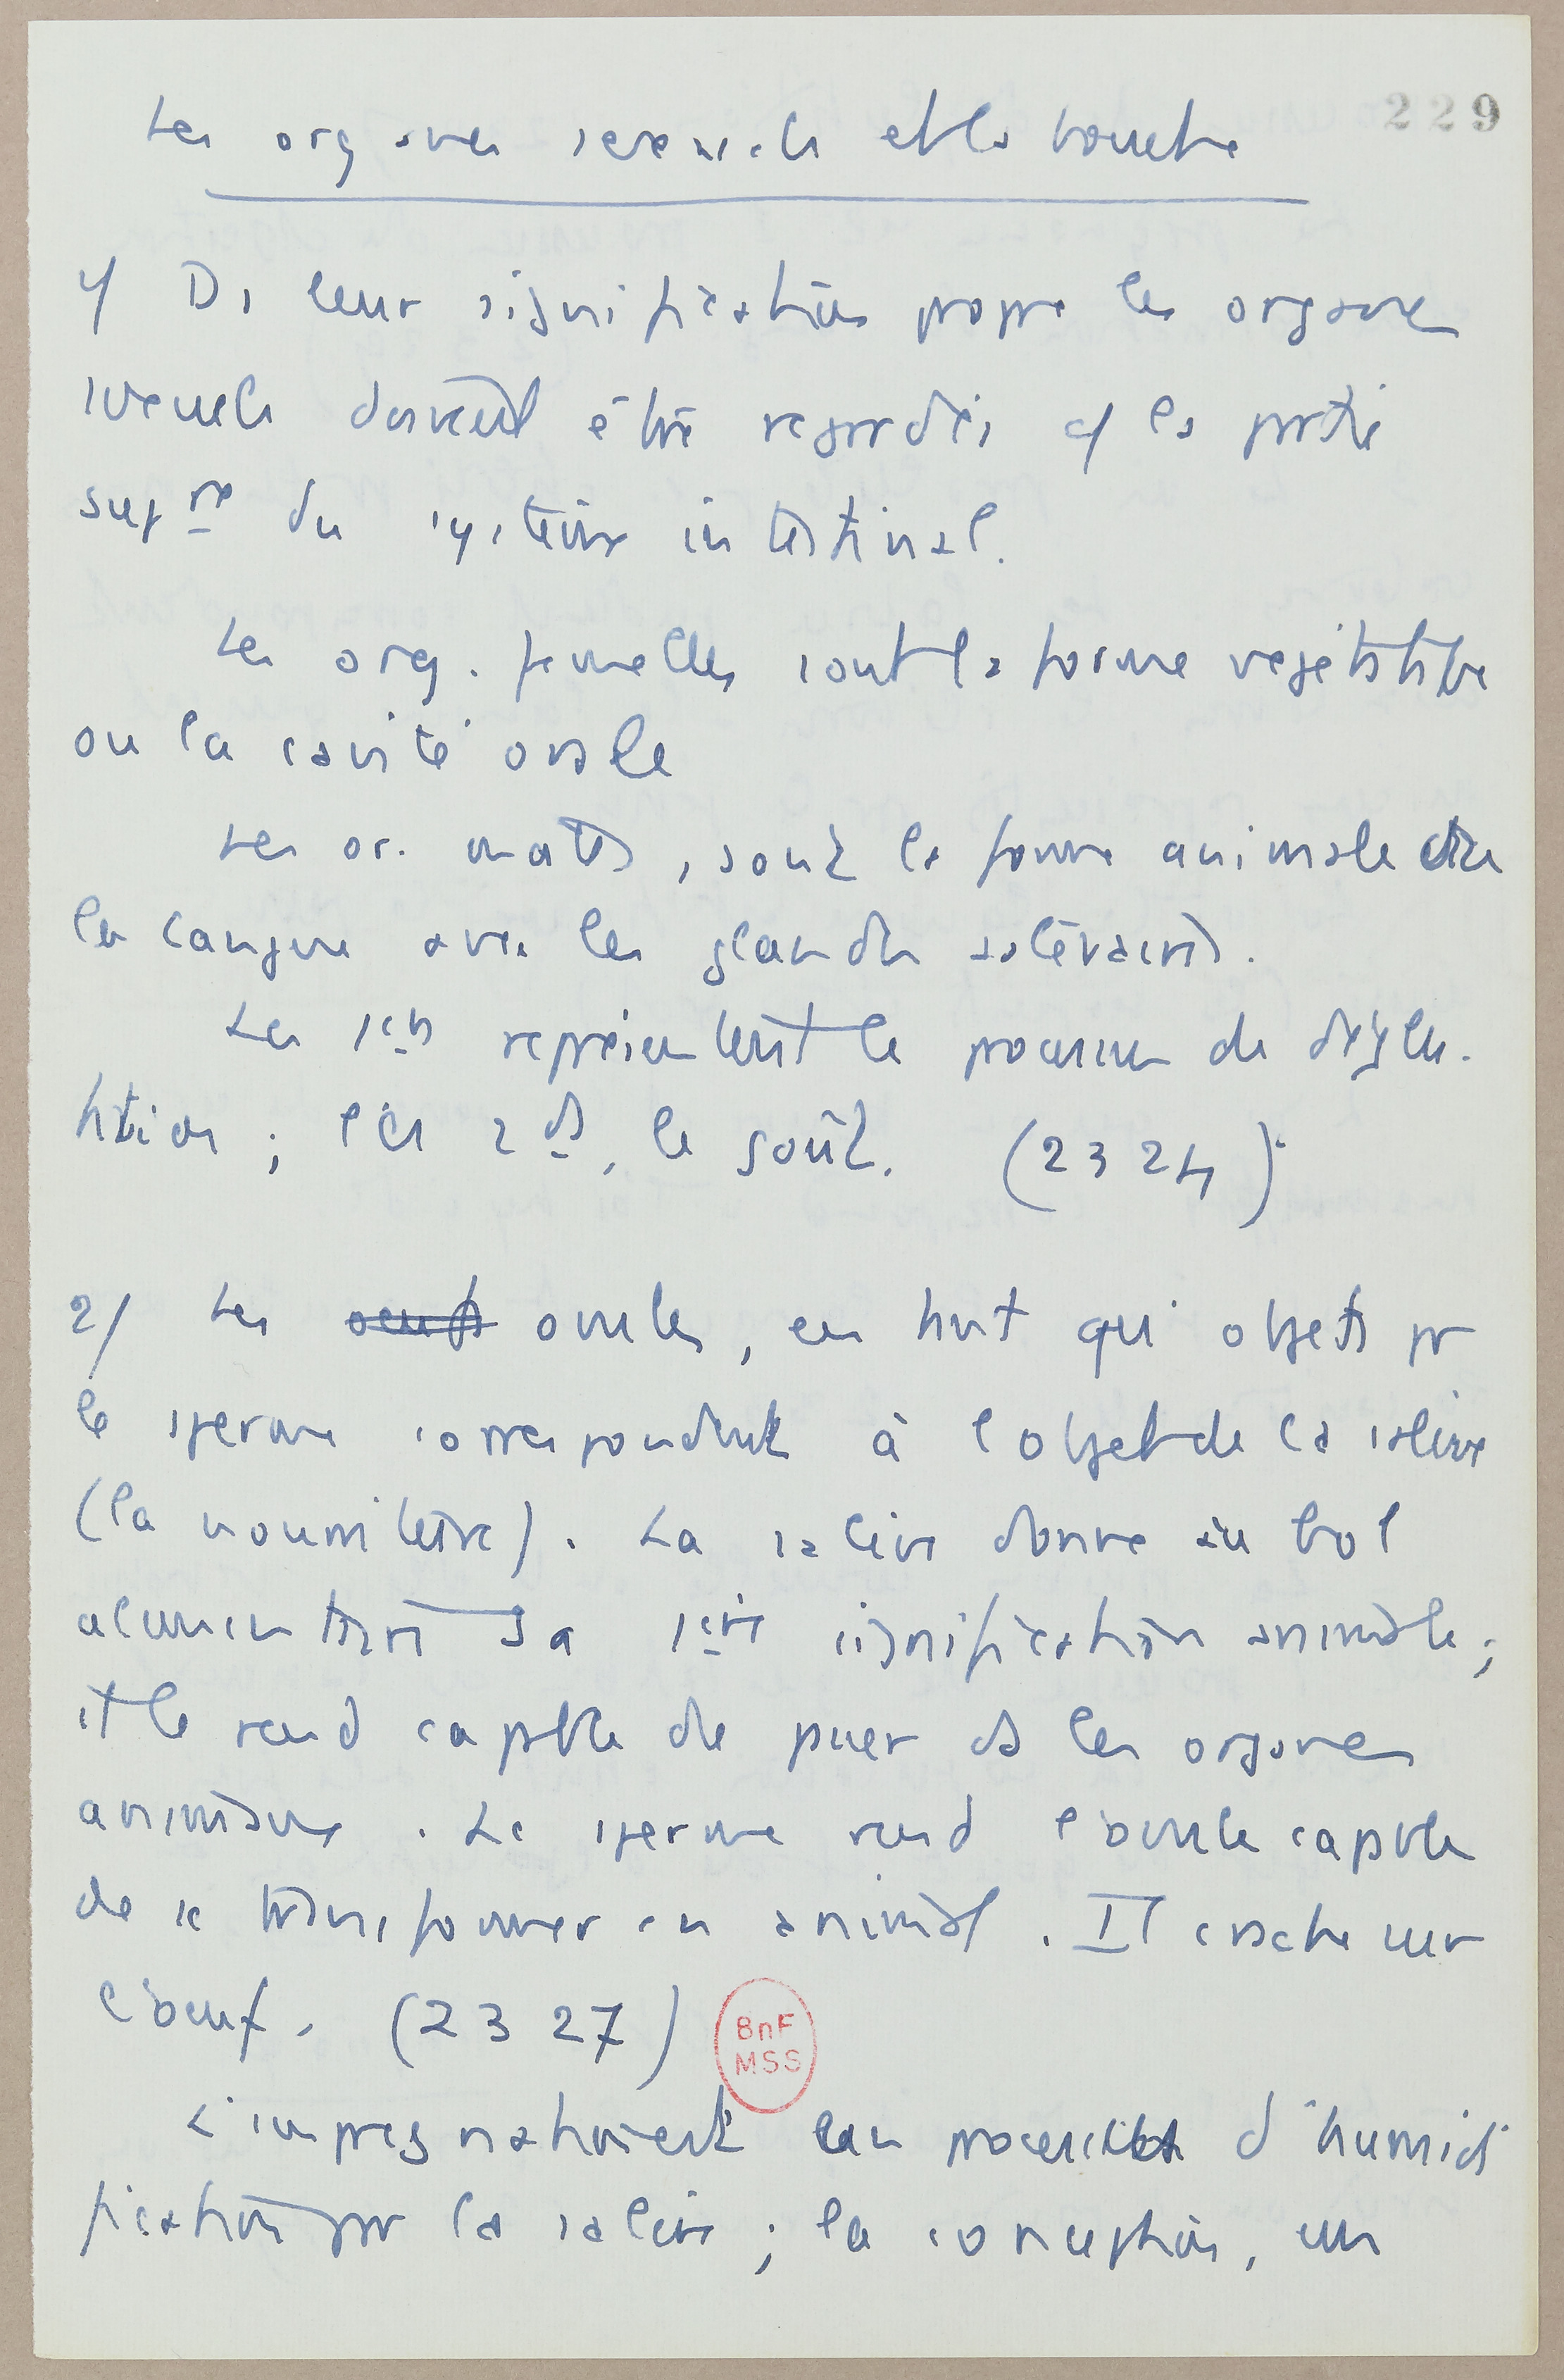 229
Les organes sexuels et la bouche
1/ Ds leur signification propre les organes
sexuels doivent être regardés c/ la partie
supre du système intestinal.
Les org. femelles sont la forme végétative
ou la cavité orale
Les or. mâles, sont la forme animale
la langue avec les glandes salivaires.
Les 1ers représentent le processus de déglu-
tition ; les 2ds, le goût. (2324).
2/ Les oeufs ovules, en tant qu'objets pr
le sperme correspondent à l'objet de la salive
(la nourriture). La salive donne au bol
alimentaire sa 1ère signification animale ;
et le rend capable de passer ds les organes
animaux. Le sperme rend l'ovule capable
de se transformer en animal. Il crache sur
l'oeuf. (2327)
BnF
MSS
L'imprégnation est un processus d'humidi
fication par la salive ; la conception, un